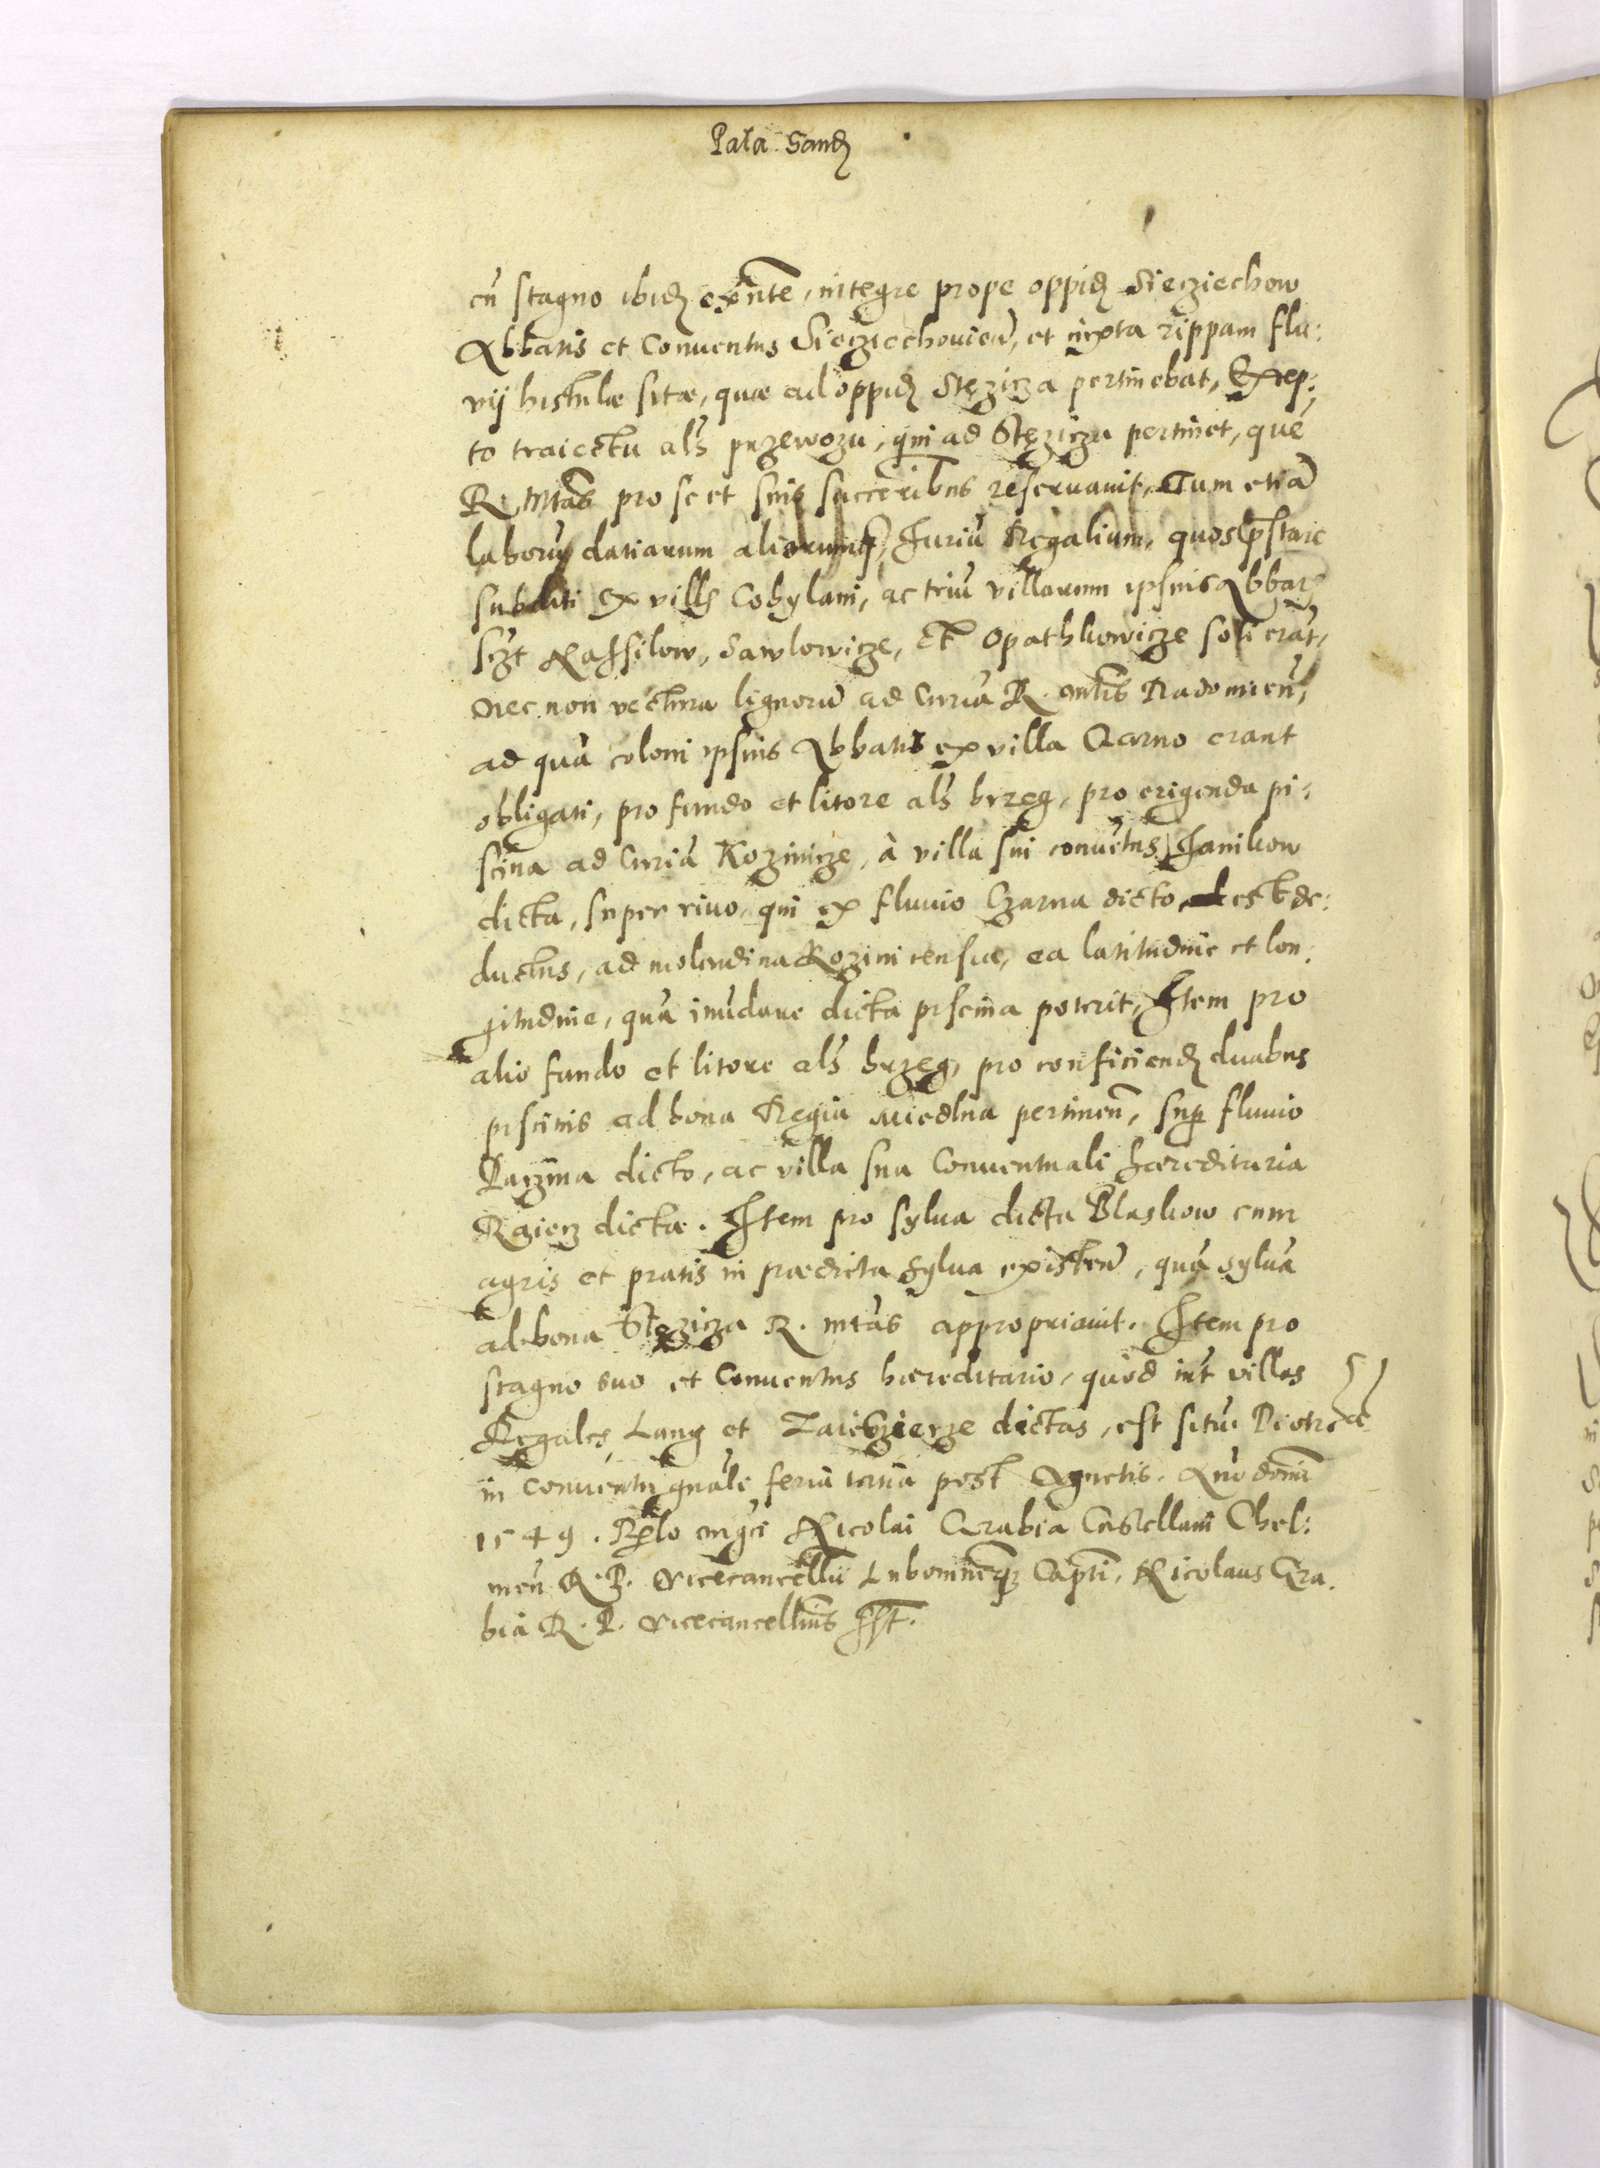 Pala. Sand
cū stagno ibid exnte, integre prope oppid Sieziechow
Abbatis et Conuentus Siecziechouien, et iuxta rippam flu:
vij histulæ sitæ, quæ ad oppid Stęzicza pertinebat, Excep:
to traiectu als przewozu, qui ad Stęziczā pertinet, quē
R. Mtas pro se et suis succeribus reseruauit, Tum etiā
laborū datiarum aliorumq Juriū Regalium, quos pstare
subditi ex villis Cobylani, ac triū villarum ipsius Abbatis
sczt Nassilow, Sawlowicze, Et Opathkowicze soliti erāt,
Nec non vectura lignorū ad Curiā R. Mtis Radomien,
ad quā coloni ipsius Abbatis ex villa Czarno erant
obligati, pro fundo et litore als brzeg, pro erigenda pi:
scina ad Curiā Kozinicze, à villa sui conuētus Janikow
dicta, super riuo, qui ex fluuio Czarna dicto est de:
ductus, ad molendina Kozinicensia, ea latitudine et lon:
gitudine, quā inūdare dicta piscina poterit, Item pro
alio fundo et litore als brzeg, pro conficiend duabus
piscinis ad bona Regia Miedzna pertinen, sup fluuio
dicto, ac villa sua Conuentuali hæreditaria
Raiecz dictæ. Item pro sylua dicta Blaskow cum
agris et pratis in prædicta sylua existen, quā syluā
ad bona Stęzicza R. mtas appropriauit. Item pro
stagno suo et Conuentus hæreditario, quod int villas
Regales Lang et Zaiezierze dictas, est sitū. Piotrcouiæ
in Conuentu gnali feria tertia post Agnetis. Anno domi
1549. Rlo mgci Nicolai Grabia Castellani Chel:
men R. P. Vicecancellarii Lubomlieq Capti. Nicolaus Gra.
bia R. P. Vicecancellarius sst.